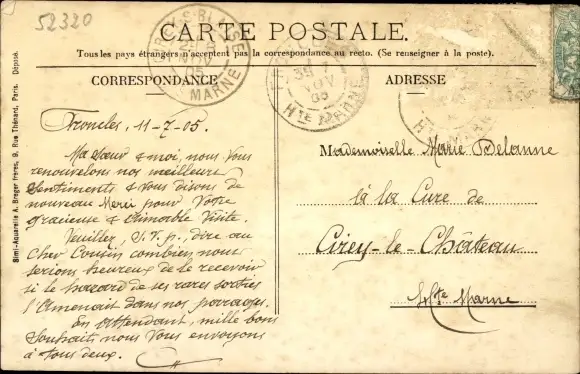 52320
CARTE POSTALE.
Tous les pays étrangers n'acceptent pas la correspondance au recto. (Se renseigner à la poste).
CORRESPONDANCE
ADRESSE
Froncles, 11-7-05.
Ma Sœur & moi, nous Vous
renouvelons nos meilleurs
Sentiments & Vous disons de
nouveau Merci pour Votre
gracieuse & aimable Visite.
Veuillez, S.V.p., dire au
Cher Cousin combien nous
serions heureux de le recevoir
si le hazard de ses rares sorties
l'Amenait dans nos parages.
En Attendant, mille bons
Souhaits nous Vous envoyons
à tous deux.
Mademoiselle Marie Delanne
à la Cure de
Cirey-le-Château
Hte Marne
HTE MARNE
MARNE
Simi-Aquarelle A. Breger Frères, 9, Rue Thénard, Paris. Déposé.